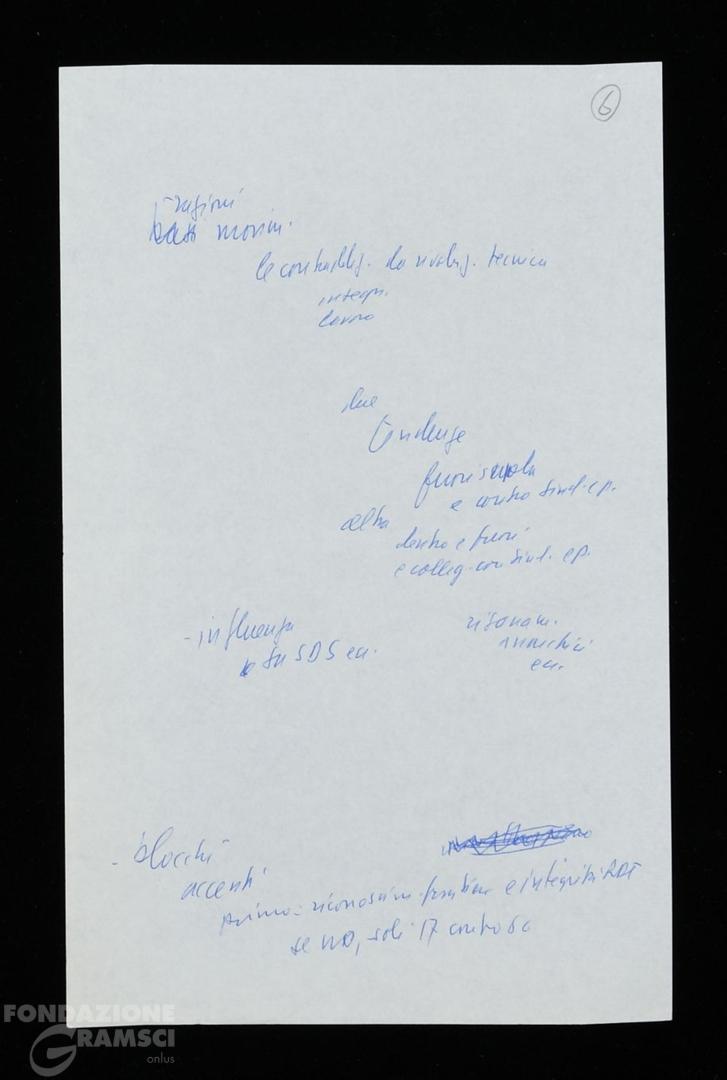 6
- ragioni
movim.
le contraddiz. da rivoluz. tecnica
integr.
lavoro
due
tendenze
fuori scuola
e contro sind. e p.
altra
dentro e fuori
e colleg. con sind. e p.
- influenza
su SDS ecc.
risonam.
anarchici
ecc.
- blocchi
accenti
primo: riconoscim. frontiere e integrità RDT
se no, soli 17 contro 60
FONDAZIONE
GRAMSCI
onlus